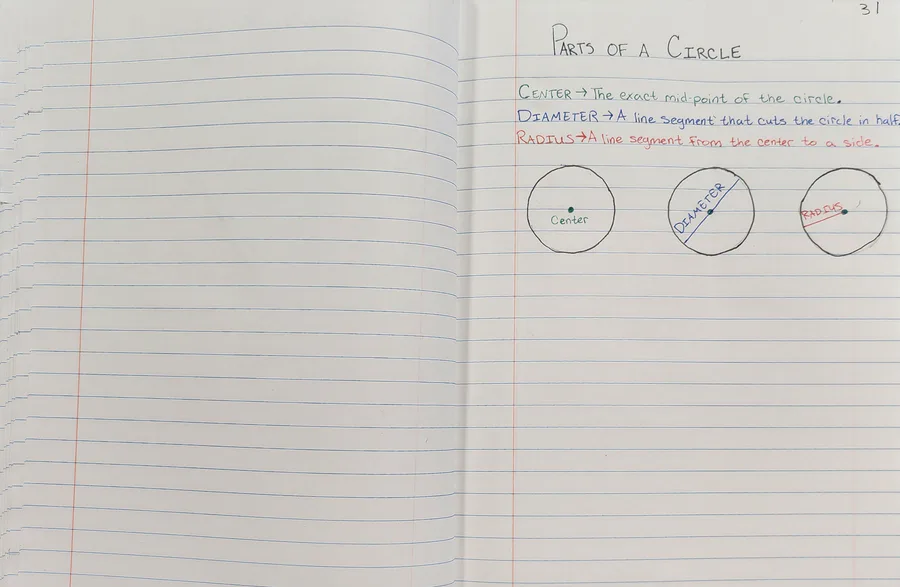 31
PARTS OF A CIRCLE
CENTER → The exact mid-point of the circle.
DIAMETER → A line segment that cuts the circle in half.
RADIUS → A line segment from the center to a side.
Center
DIAMETER
RADIUS